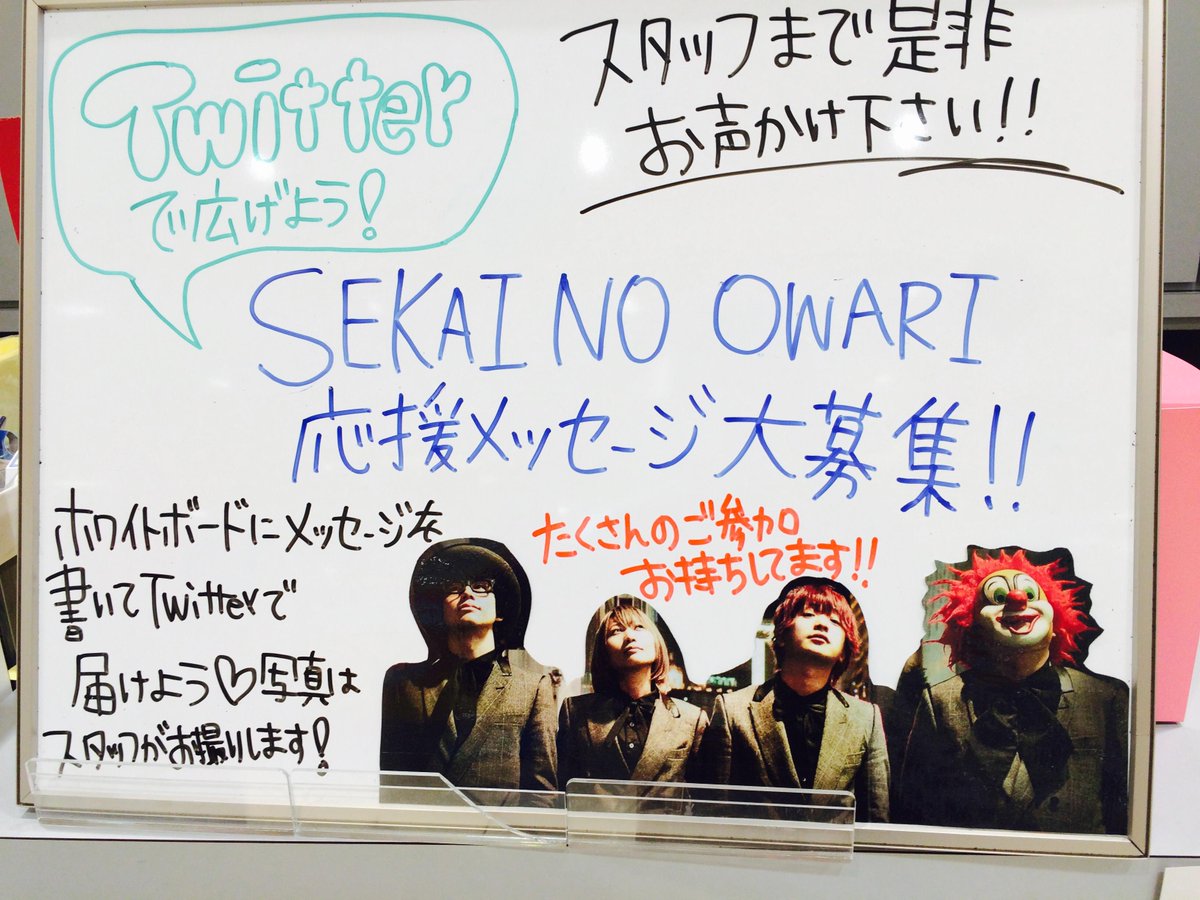 Twitter
で広げよう!
スタッフまで是非
お声かけ下さい!!
SEKAI NO OWARI
応援メッセージ大募集!!
ホワイトボードにメッセージを
書いてTwitterで
届けよう♡写真は
スタッフがお撮りします!
たくさんのご参加
お待ちしてます!!